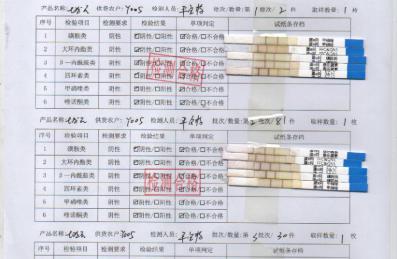 产品名称: 供货农户: Y005 检测人员: 批次/数量: 第1批次/2件 取样数量: 1枚
序号 检验项目 检测要求 检验结果 单项判定 试纸条存档
1 磺胺类 阴性 ☑阴性/□阳性 ☑合格/□不合格
2 大环内酯类 阴性 ☑阴性/□阳性 ☑合格/□不合格
3 β-内酰胺类 阴性 ☑阴性/□阳性 ☑合格/□不合格
4 四环素类 阴性 ☑阴性/□阳性 ☑合格/□不合格
5 甲硝唑类 阴性 ☑阴性/□阳性 ☑合格/□不合格
6 喹诺酮类 阴性 ☑阴性/□阳性 ☑合格/□不合格
检测合格
产品名称: 供货农户: Y005 检测人员: 批次/数量: 第2批次/81件 取样数量: 1枚
序号 检验项目 检测要求 检验结果 单项判定 试纸条存档
1 磺胺类 阴性 ☑阴性/□阳性 ☑合格/□不合格
2 大环内酯类 阴性 ☑阴性/□阳性 ☑合格/□不合格
3 β-内酰胺类 阴性 ☑阴性/□阳性 ☑合格/□不合格
4 四环素类 阴性 ☑阴性/□阳性 ☑合格/□不合格
5 甲硝唑类 阴性 ☑阴性/□阳性 ☑合格/□不合格
6 喹诺酮类 阴性 ☑阴性/□阳性 ☑合格/□不合格
检测合格
产品名称: 供货农户: Y005 检测人员: 批次/数量: 第3批次/30件 取样数量: 1枚
序号 检验项目 检测要求 检验结果 单项判定 试纸条存档